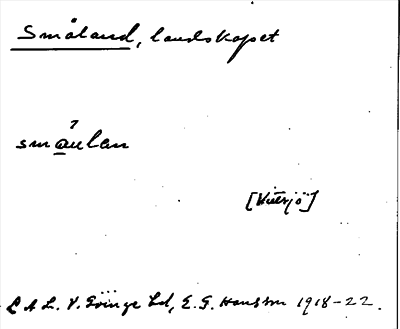 Småland, landskapet
småulan
[Vittsjö]
L A L. V. Göinge hd, E. G. Hansson 1918-22.